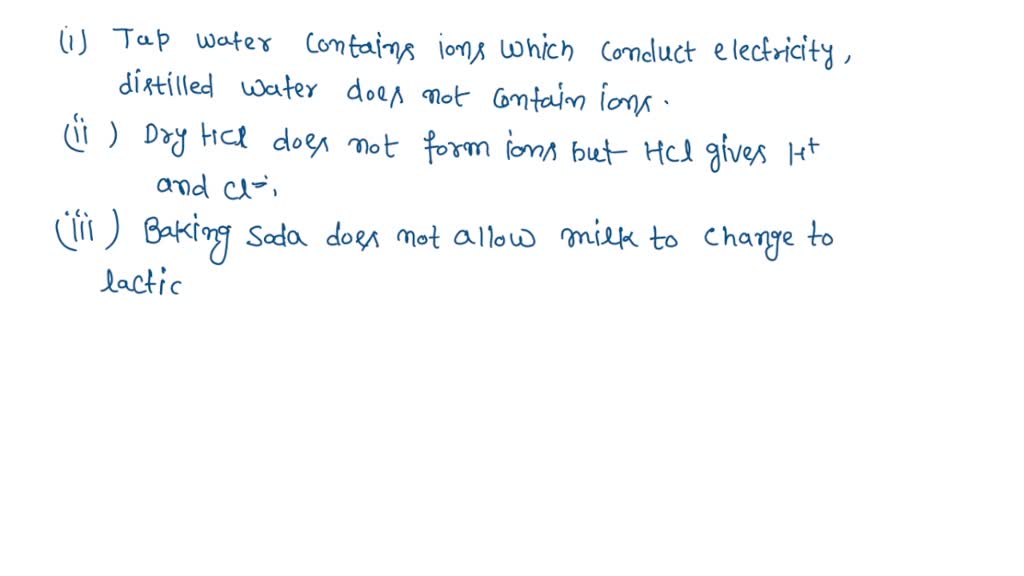 (i) Tap water contains ions which conduct electricity,
distilled water does not contain ions.
(ii) Dry HCl does not form ions but HCl gives H+
and Cl-.
(iii) Baking soda does not allow milk to change to
lactic